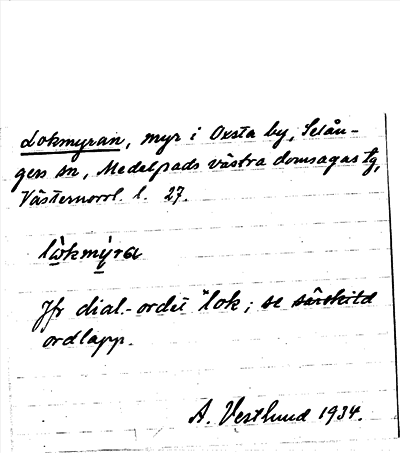 Lokmyran, myr i Oxsta by, Selån-
gers sn, Medelpads västra domsagas tg,
Västernorrl. l. 27.
lòkmýra
Jfr dial.-ordet lok; se särskild
ordlapp.
A. Vestlund 1934.